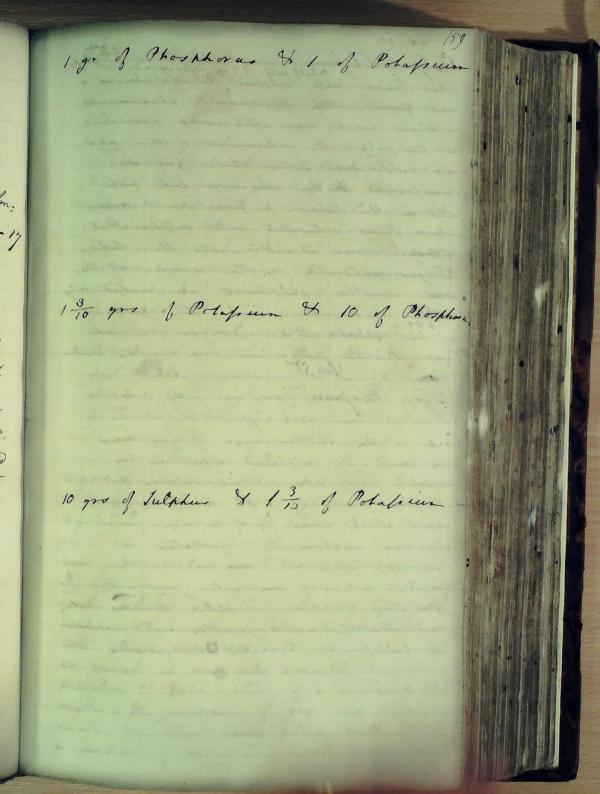 159
1 gr of Phosphorus & 1 of Potassium
on:
- 17
1 3/10 grs of Potassium & 10 of Phosphorus
10 grs of Sulphur & 1 3/10 of Potassium